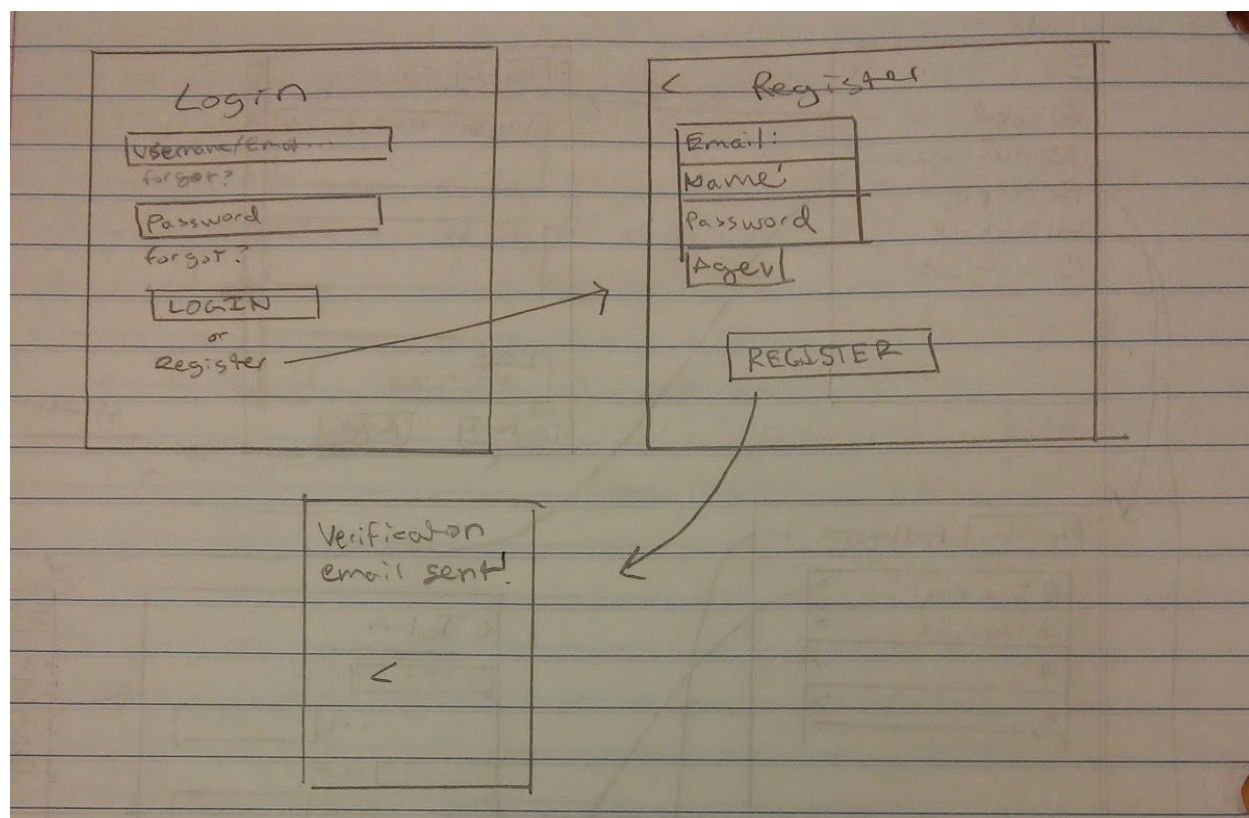 Login
Username/Email...
forgot?
Password
forgot?
LOGIN
or
Register
< Register
Email:
Name:
Password
Age v
REGISTER
Verification
email sent!
<